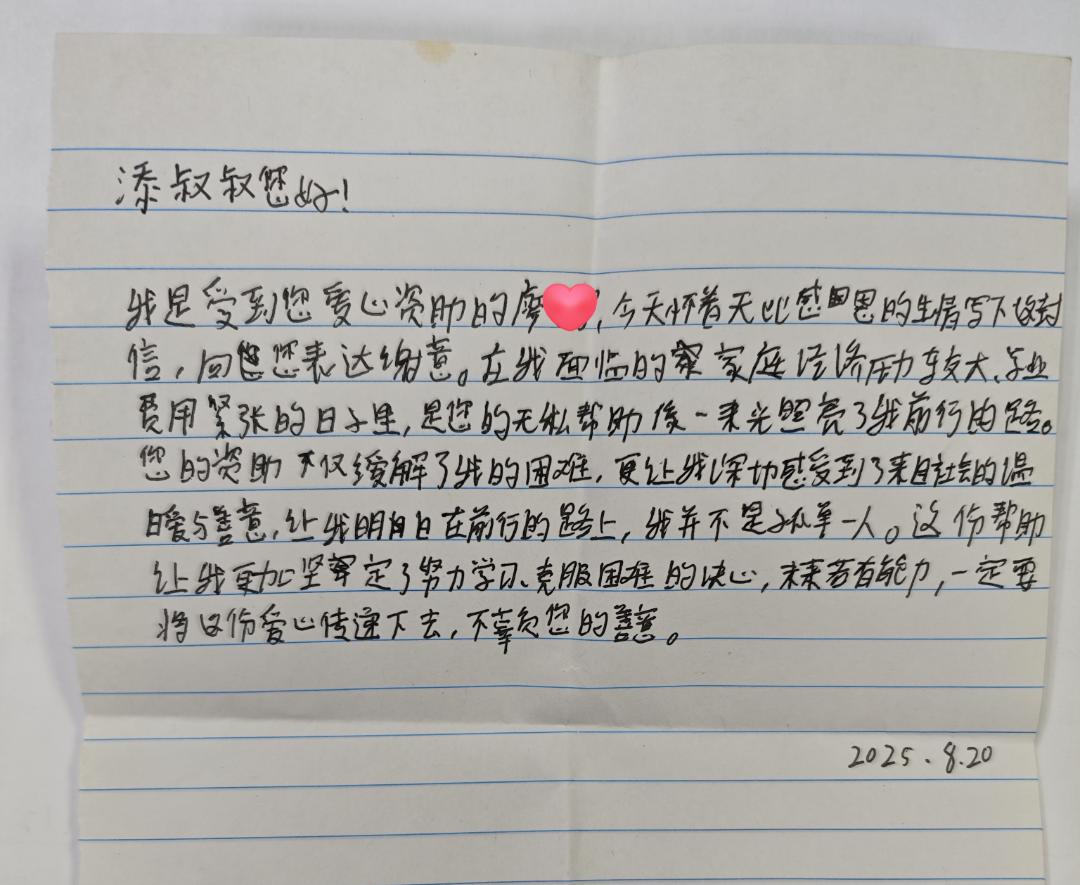 添叔叔您好!
我是受到您爱心资助的廖,今天怀着无比感恩的生情写下这封
信,向您表达谢意。在我面临的家庭经济压力较大、学业
费用紧张的日子里,是您的无私帮助像一束光照亮了我前行的路。
您的资助不仅缓解了我的困难,更让我深切感受到了来自社会的温
暖与善意,让我明白在前行的路上,我并不是孤单一人。这份帮助
让我更加坚定了努力学习、克服困难的决心,未来若有能力,一定要
将这份爱心传递下去,不辜负您的善意。
2025.8.20